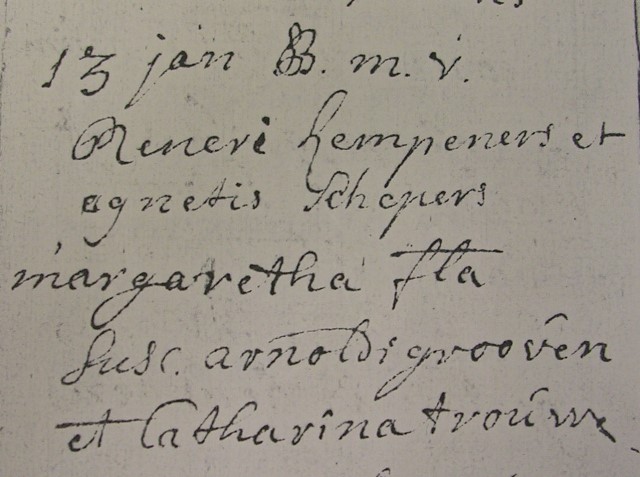 13 jan B. m. v.
Reneri Kempeners et
agnetis Schepers
margaretha fla
Susc. arnoldi grooven
et Catharina trouwx